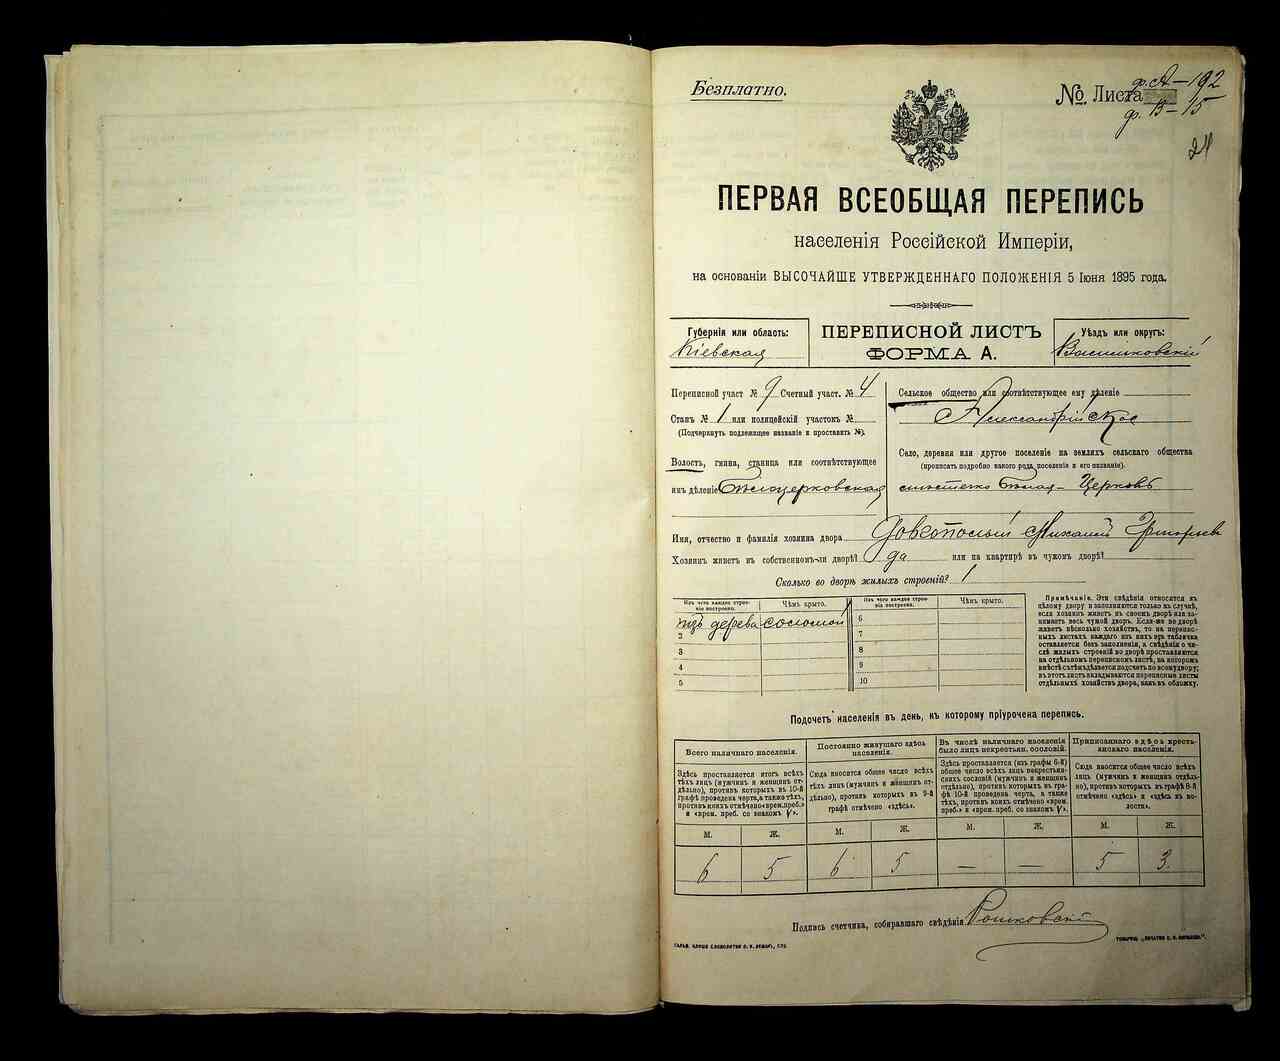 Безплатно.
№. Листа ф. А – 192
ф. Б – 15
24
ПЕРВАЯ ВСЕОБЩАЯ ПЕРЕПИСЬ
населенія Россійской Имперіи,
на основаніи ВЫСОЧАЙШЕ УТВЕРЖДЕННАГО ПОЛОЖЕНІЯ 5 Іюня 1895 года.
Губернія или область:
Кіевская
ПЕРЕПИСНОЙ ЛИСТЪ
ФОРМА А.
Уѣздъ или округъ:
Васильковскій
Переписной участ № 9 Счетный участ. № 4
Станъ № 1 или полицейскій участокъ №
(Подчеркнуть подлежащее названіе и проставить №).
Волость, гмина, станица или соотвѣтствующее
имъ дѣленіе Бѣлоцерковская
Сельское общество или соотвѣтствующее ему дѣленіе
Александрійское
Село, деревня или другое поселеніе на земляхъ сельскаго общества
(прописать подробно какого рода поселеніе и его названіе).
мѣстечко Бѣлая-Церковь
Имя, отчество и фамилія хозяина двора Довгополый Михаилъ Григорьев
Хозяинъ живетъ въ собственномъ-ли дворѣ? да или на квартирѣ въ чужомъ дворѣ?
Сколько во дворѣ жилыхъ строеній? 1
Изъ чего каждое строе-
ніе построено.
Чѣмъ крыто.
изъ дерева соломой
2
3
4
5
Изъ чего каждое строе-
ніе построено.
Чѣмъ крыто.
6
7
8
9
10
Примѣчаніе. Эти свѣдѣнія относятся къ
цѣлому двору и заполняются только въ случаѣ,
если хозяинъ живетъ въ своемъ дворѣ или за-
нимаетъ весь чужой дворъ. Если-же во дворѣ
живетъ нѣсколько хозяйствъ, то на перепис-
ныхъ листахъ каждаго изъ нихъ эта табличка
оставляется безъ заполненія, а свѣдѣнія о чи-
слѣ жилыхъ строеній во дворѣ проставляются
на отдѣльномъ переписномъ листѣ, на которомъ
вмѣстѣ съ тѣмъ дѣлается подсчетъ по всему двору;
въ этотъ листъ вкладываются переписные листы
отдѣльныхъ хозяйствъ двора, какъ въ обложку.
Подсчетъ населенія въ день, къ которому пріурочена перепись.
Всего наличнаго населенія.
Здѣсь проставляется итогъ всѣхъ
тѣхъ лицъ (мужчинъ и женщинъ от-
дѣльно), противъ которыхъ въ 10-й
графѣ проведена черта, а также тѣхъ,
противъ коихъ отмѣчено «врем. преб.»
и «врем. преб. со знакомъ V».
М. Ж.
6 5
Постоянно живущаго здѣсь
населенія.
Сюда вносится общее число всѣхъ
тѣхъ лицъ (мужчинъ и женщинъ от-
дѣльно), противъ которыхъ въ 9-й
графѣ отмѣчено «здѣсь».
М. Ж.
6 5
Въ числѣ наличнаго населенія
было лицъ некрестьян. сословій.
Здѣсь проставляется (изъ графы 6-й)
общее число всѣхъ лицъ некрестьян-
скихъ сословій (мужчинъ и женщинъ
отдѣльно), противъ которыхъ въ гра-
фѣ 10-й проведена черта, а также
тѣхъ, противъ коихъ отмѣчено «врем.
преб.» и «врем. преб. со знакомъ V».
М. Ж.
— —
Приписаннаго здѣсь кресть-
янскаго населенія.
Сюда вносится общее число всѣхъ
лицъ (мужчинъ и женщинъ отдѣль-
но), противъ которыхъ въ графѣ 8-й
отмѣчено «здѣсь» и «здѣсь въ во-
лости».
М. Ж.
5 3
Подпись счетчика, собиравшаго свѣдѣнія